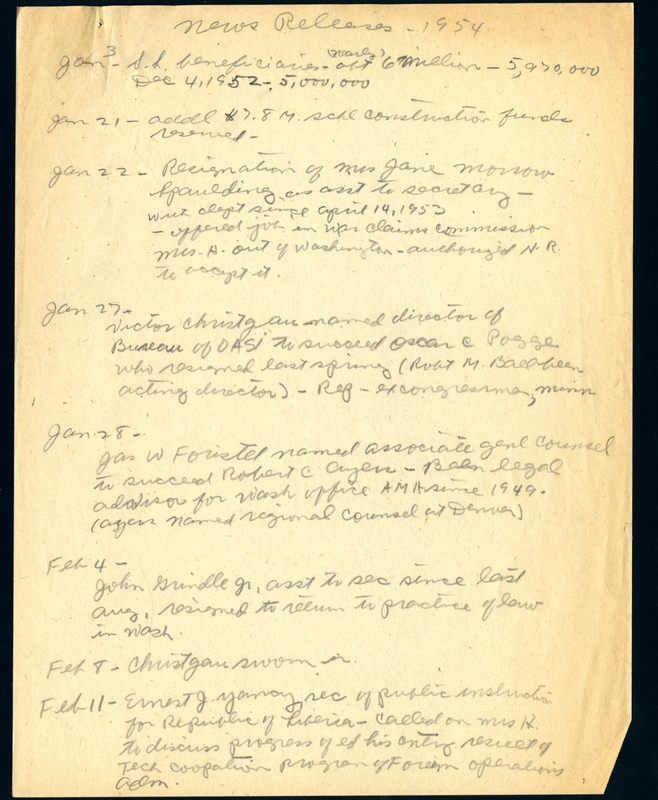 News Releases - 1954
Jan 3 - S.S. beneficiaries - abt (nearly) 6 million - 5,970,000
Dec 4, 1952 - 5,000,000
Jan 21 - addl $7.8 M. schl construction funds
reserved -
Jan 22 - Resignation of Mrs Jane Morrow
Spaulding as asst to secretary -
with dept since april 14, 1953
- offered job in war claims commission
Mrs. H. out of Washington - authorized N.R.
to accept it.
Jan 27 -
Victor Christgau named director of
Bureau of OASI to succeed oscar C Pogge
who resigned last spring (Robt M. Ball been
acting director) - Rep - excongressman, minn
Jan 28 -
Jas W Foristel named associate genl counsel
to succeed Robert C Ayers - Been legal
advisor for wash office AMA since 1949.
(ayers named regional counsel at Denver)
Feb 4 -
John Grindle Jr, asst to sec since last
aug, resigned to return to practice of law
in wash.
Feb 8 - Christgau sworn in
Feb 11 - Ernest J. Yancy, sec of public instruction
for Republic of Liberia - called on Mrs H.
to discuss progress of ed his cntry result of
Tech coopation program of Foreign operations
adm.